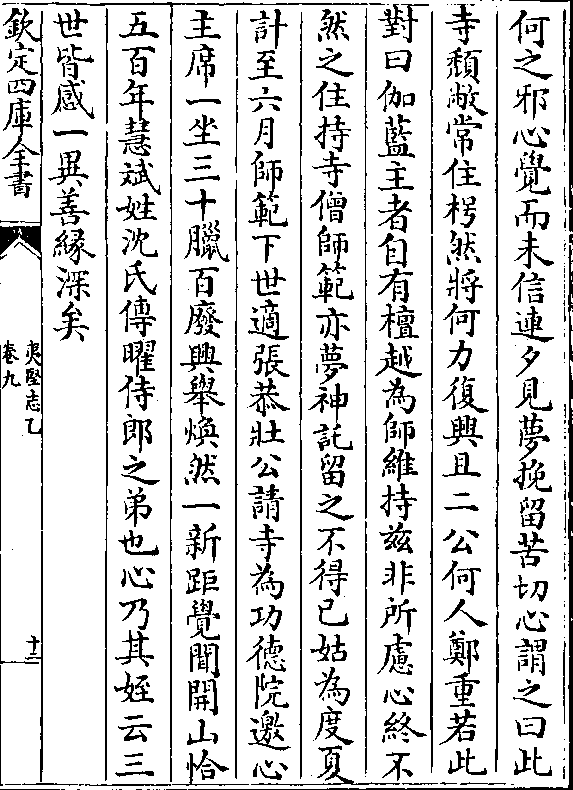 何之邪心覺而未信連夕見夢挽留苦切心謂之曰此
寺頽敝常住枵然將何力復興且二公何人鄭重若此
對曰伽藍主者自有檀越為師維持兹非所慮心終不
然之住持寺僧師範亦夢神託留之不得已姑為度夏
計至六月師範下世適張恭壯公請寺為功德院邀心
主席一坐三十臘百廢興舉煥然一新距覺聞開山恰
五百年慧斌姓沈氏傳曜侍郎之弟也心乃其姪云三
世皆感一異善緣深矣
欽定四庫全書
夷堅志乙
卷九
十二